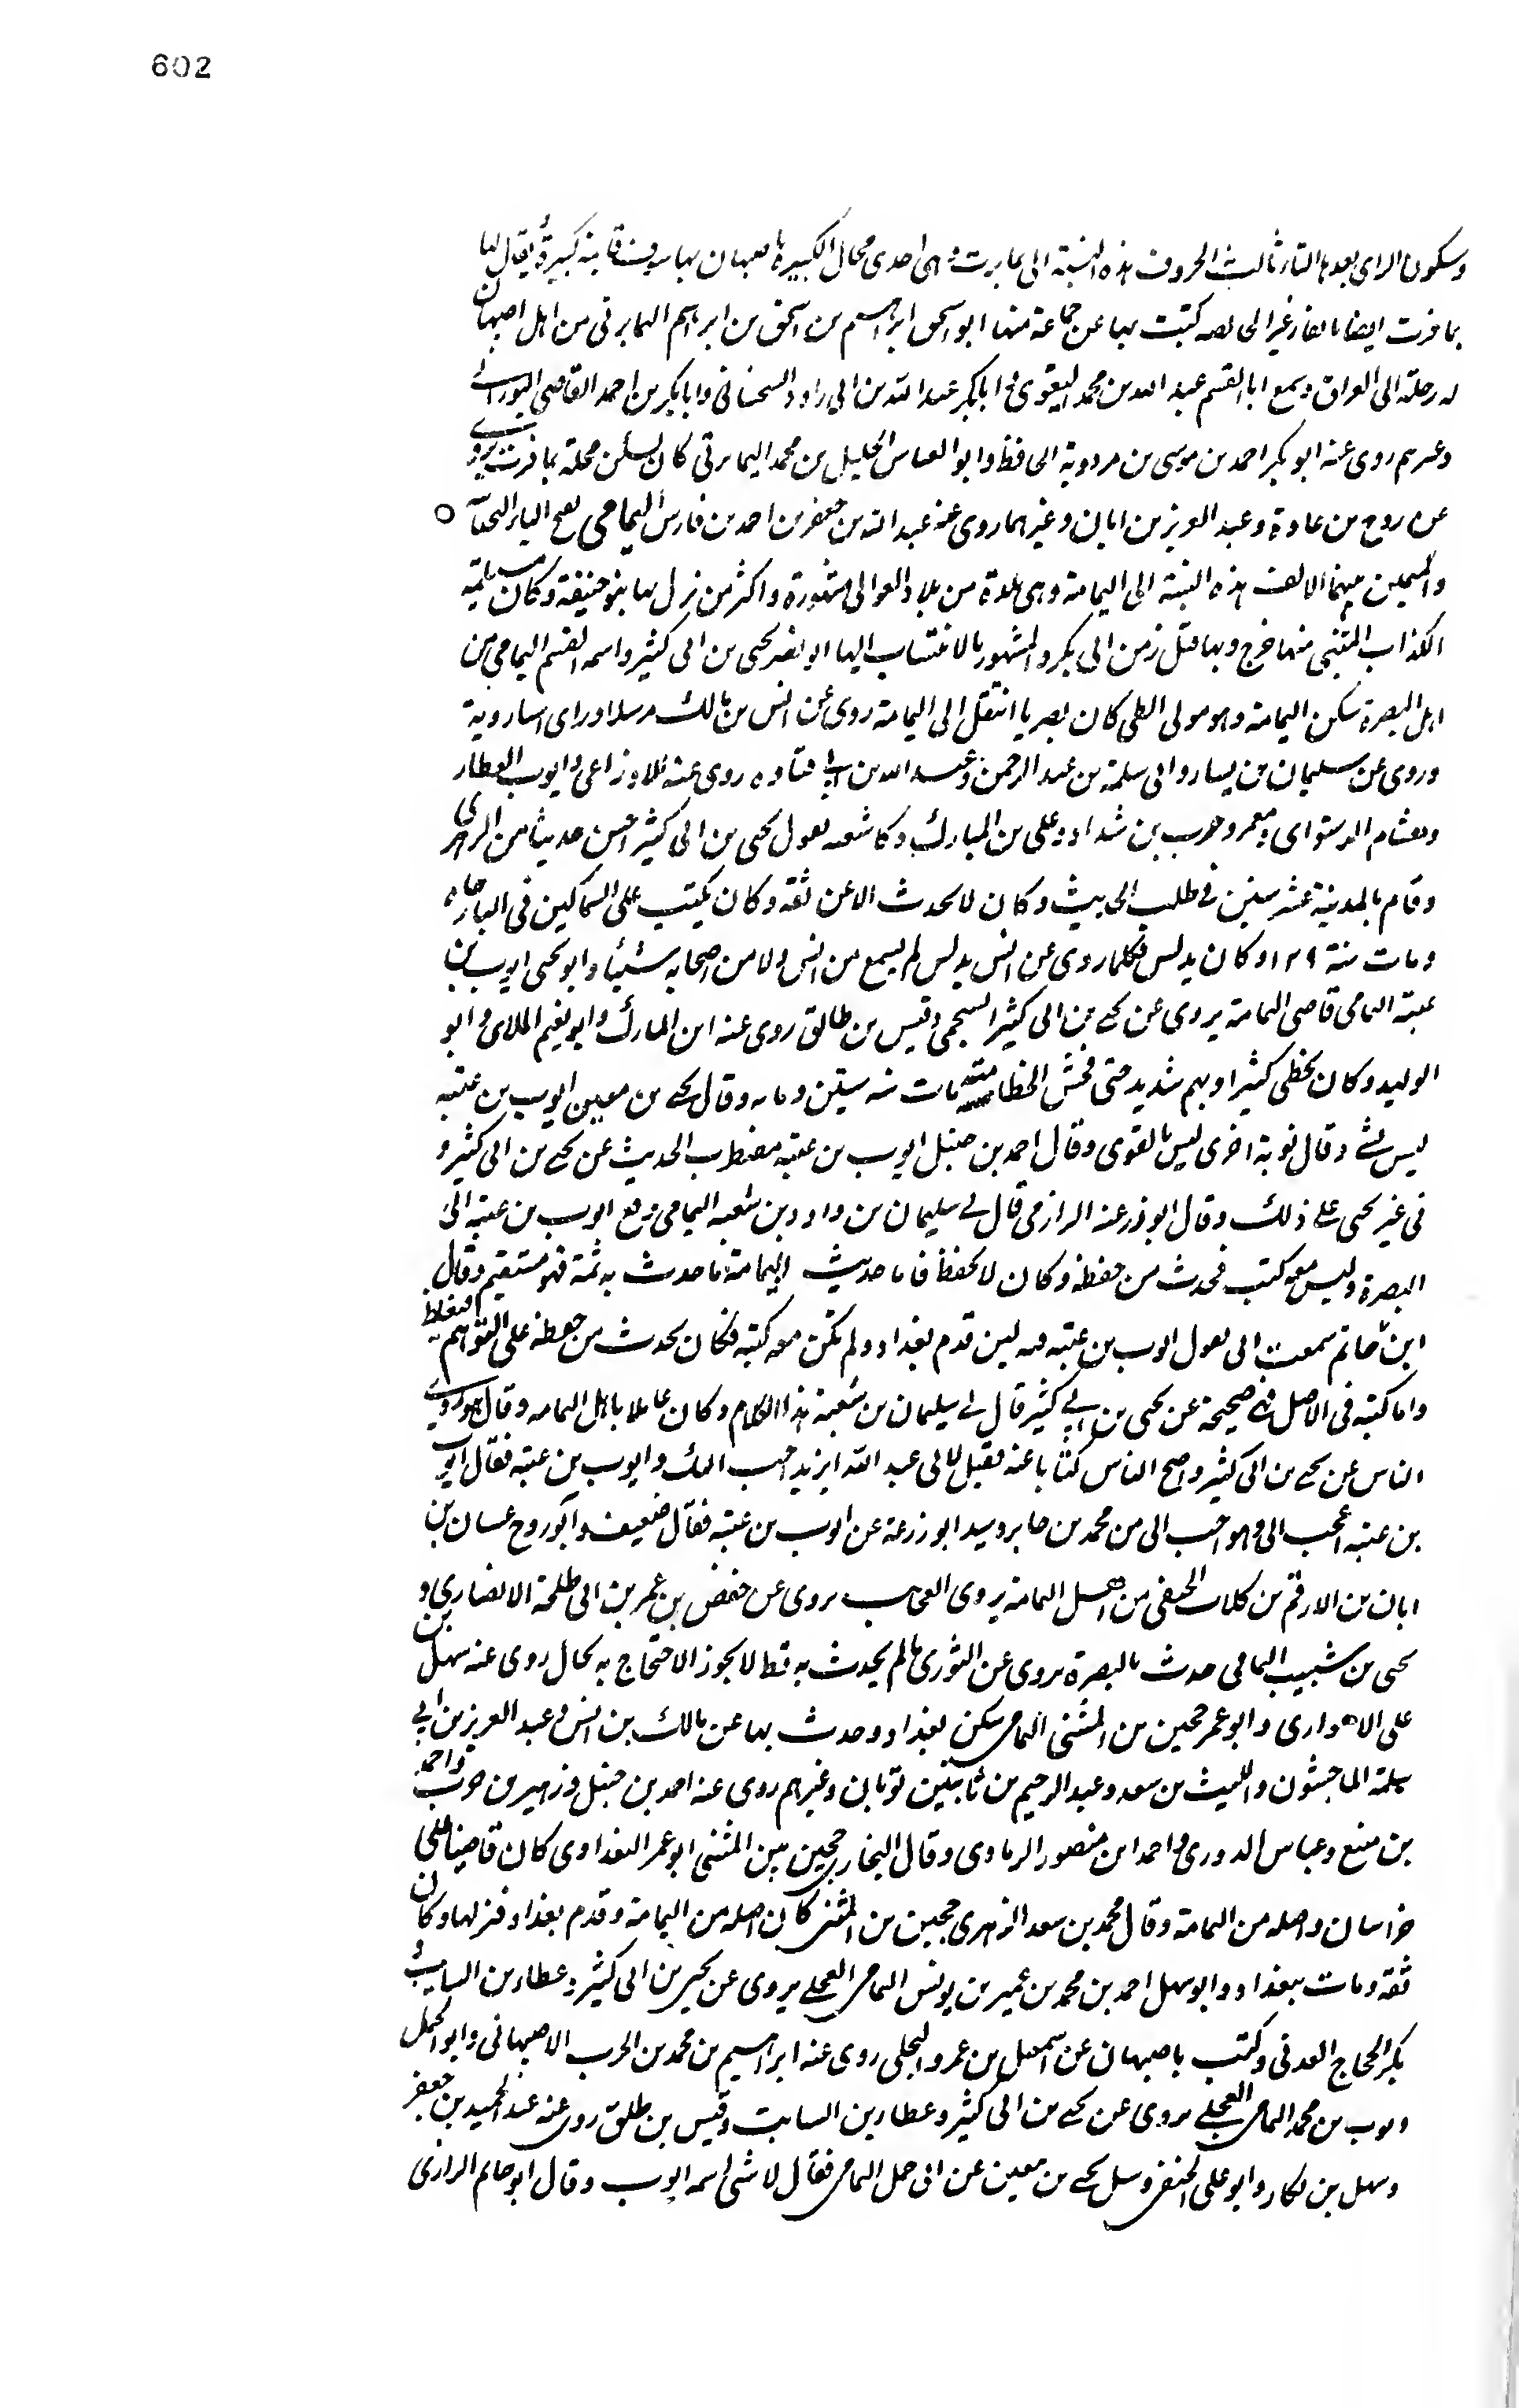 602
وسكون الراى بعدها التاء ثالث الحروف هذه النسبة الى يمابرت وهى احدى محال الكبيرة باصبهان بها كبيرة يقال لها
يمافرت ايضا بالفاء غير الى كتبت بها عن جماعة منها ابو اسحق ابراهيم بن اسحق بن ابراهيم اليمابرتى من اهل اصبهان
له رحلة الى العراق وسمع ابا القسم عبد الله بن محمد البغوى و ابا بكر عبد الله بن ابى داود السجستانى وابا بكر بن احمد القاضى
وغيرهم روى عنه ابو بكر احمد بن موسى بن مردوية الحافظ وابو العباس الخليل بن محمد اليمابرتى كان يسكن محلة يمافرت يروى
عن روح بن عبادة وعبد العزيز بن ابان وغيرهما روى عنه عبد الله بن جعفر بن احمد بن فارس اليمامى بفتح الياء
والميمين بينهما الالف هذه النسبة الى اليمامة وهى بلدة من بلاد العوالى مشهورة واكثر من نزل بها بنو حنيفة وكان مسلمة
الكذاب المتنبى منها خرج وبها قتل زمن ابى بكر والمشهور بالانتساب اليها ابو نصر يحيى بن ابى كثير واسمه القسم اليمامى من
اهل البصرة سكن اليمامة وهو مولى الطى كان بصريا انتقل الى اليمامة روى عن انس بن مالك مرسلا وراى انسا روية
وروى عن سليمان بن يسار وابى سلمة بن عبد الرحمن وعبد الله بن ابى قتاده روى عنه الاوزاعى وايوب العطار
وهشام الدستواى ومعمر وحرب بن شداد وعلى بن المبارك وكا شعبه يقول يحيى بن ابى كثير احسن حديثا من الزهرى
وقام بالمدينة عشر سنين فى طلب الحديث وكان لا يحدث الا عن ثقة وكان يكتب على السماكين فى
ومات سنة ١٢٩ وكان يدلس فكلما روى عن انس يدلس لم يسمع من انس ولا من اصحابه شيئا وابو يحيى ايوب بن
عتبة اليمامى قاضى اليمامة يروى عن يحيى بن ابى كثير السحيمى وقيس بن طالق روى عنه ابن المبارك وابو نعيم الملائ و ابو
الوليد وكان يخطى كثيرا ويهم شديد حتى فحش الخطا منه مات سنه ستين ومايه وقال يحيى بن معين ايوب بن عتبه
ليس بشى وقال نوبة اخرى ليس بالقوى وقال احمد بن حنبل ايوب بن عتبه مضطرب الحديث عن يحيى بن ابى كثير و
فى غير يحيى على ذلك وقال ابو زرعه الرازى قال لى سليمان بن داود بن شعبه اليمامى وقع ايوب بن عتبه الى
البصرة وليس معه كتب فحدث من حفظه وكان لا يحفظ فاما حديث اليمامة ما حدث به ثمة فهو مستقيم وقال
ابن حاتم سمعت ابى يقول ايوب بن عتبه فيه لين قدم بغداد ولم تكن معه كتبه فكان يحدث من حفظه على التوهم فيغلط
واما كتبه فى الاصل فهى صحيحة عن يحيى بن ابى كثير قال لى سليمان بن شعبة هذا الكلام وكان عالما باهل اليمامه وقال هو اروى
الناس عن يحيى بن ابى كثير واصح الناس كتابا عنه فقيل لابى عبد الله احب اليك و ايوب بن عتبه فقال ايوب
بن عتبه اعجب الى وهو احب الى من محمد بن جابر وسيد ابو زرعة عن ايوب بن عتبه فقال ضعيف وابو روح غسان بن
ابان بن الارقم بن كلاب الحنفى من اهل اليمامة يروى العجايب يروى عن حفص بن عمر بن ابى طلحة الانصارى و
يحيى بن شبيب اليمامى حدث بالبصرة يروى عن الثورى ما لم يحدث به قط لا يجوز الاحتجاج به بحال روى عنه سهل بن
على الاهوارى وابو عمر حجين بن المثنى اليمامى سكن بغداد وحدث بها عن مالك بن انس وعبد العزيز بن ابى
سلمة الماجشون والليث بن سعد وعبد الرحيم بن ثابت بن ثوبان وغيرهم روى عنه احمد بن حنبل وزهير بن حرب واحمد
بن منيع وعباس الدورى واحمد ابن منصور الرمادى وقال البخارى حجين بن المثنى ابو عمر البغدادى كان قاضيا على
خراسان واصله من اليمامة وقال محمد بن سعد الزهرى حجين بن المثنى كان اصله من اليمامة وقدم بغداد فنزلها وكان
ثقة ومات ببغداد وابو سهل احمد بن محمد بن عمير بن يونس اليمامى العجلى يروى عن يحيى بن ابى كثير و عطاء بن السايب
بكر الحاج العدنى وكتب باصبهان عن اسمعيل بن عمرو البجلى روى عنه ابراهيم بن محمد بن الحرب الاصبهانى وابو الجمل
ايوب بن محمد اليمامى العجلى يروى عن يحيى بن ابى كثير وعطاء بن السايب وقيس بن طلق روى عنه عبد الحميد بن جعفر
وسهل بن بكار وابو على الحنفى وسئل يحيى بن معين عن ابى جمل اليمامى فقال لا شى اسمه ايوب وقال ابو حاتم الرازى